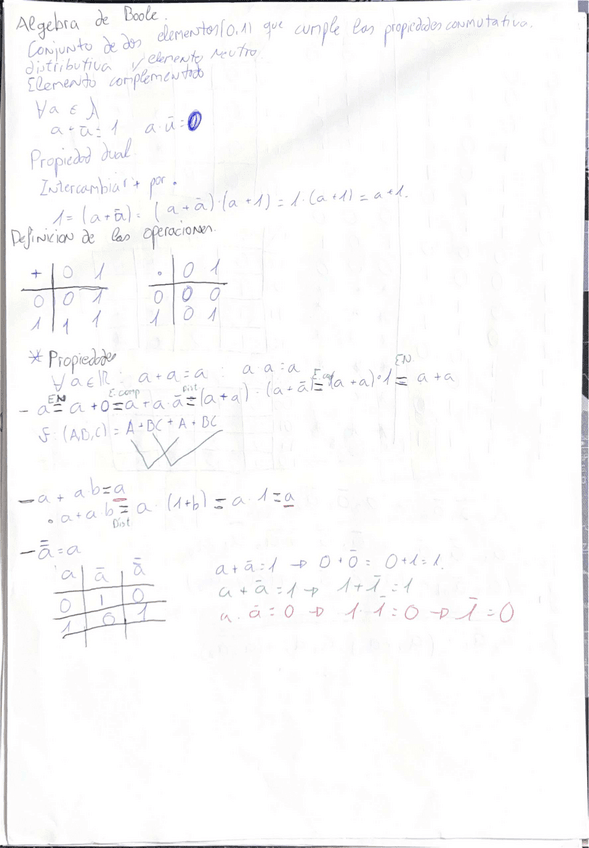 Algebra de Boole.
Conjunto de dos elementos(0,1) que cumple las propiedades conmutativa.
distributiva y elemento neutro
Elemento complementado
∀a ∈ A
a + ā = 1 a · ā = 0
Propiedad dual
Intercambiar + por ·
1 = (a + ā) = (a + ā) · (a + 1) = 1 · (a+1) = a+1.
Definicion de las operaciones.
+ 0 1 · 0 1
0 0 1 0 0 0
1 1 1 1 0 1
* Propiedades
∀a ∈ IR : a + a = a : a a = a
EN E.comp Dist EN
- a = a + 0 = a + a · ā = (a + a) · (a + ā) = (a + a) · 1 = a + a
f: (AB,C) = A + BC + A + BC
- a + ab = a
· a + ab = a · (1+b) = a · 1 = a
Dist
- a̿ = a
a ā a̿
0 1 0
1 0 1
a + ā = 1 → 0 + 0̄ = 0+1 = 1.
a + ā = 1 → 1 + 1̄ = 1
a · ā = 0 → 1 · 1̄ = 0 → 1̄ = 0